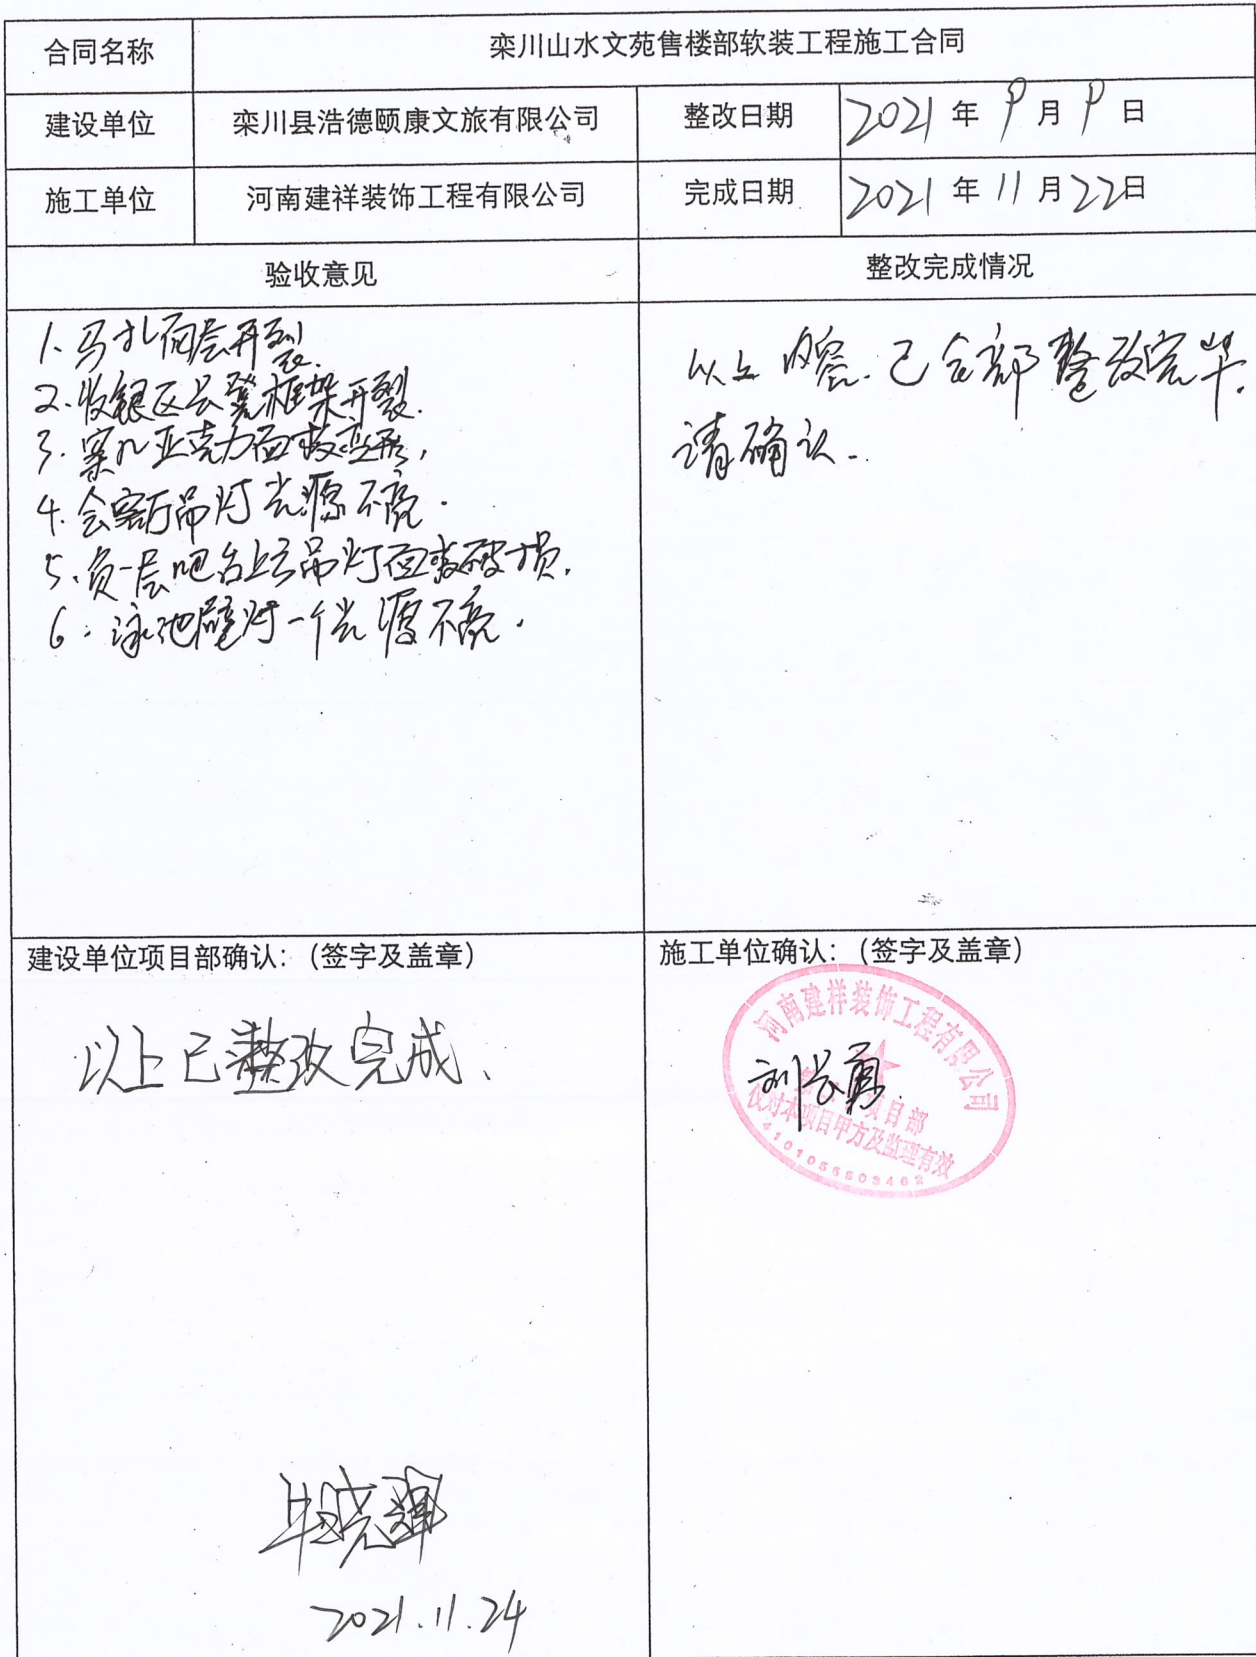 合同名称 栾川山水文苑售楼部软装工程施工合同
建设单位 栾川县浩德颐康文旅有限公司 整改日期 2021年9月9日
施工单位 河南建祥装饰工程有限公司 完成日期 2021年11月22日
验收意见 整改完成情况
1、马扎面层开裂
2、收银区长凳框架开裂.
3、案几亚克力面板变形,
4、会客厅吊灯光源不亮.
5、负一层吧台上方吊灯面板破损.
6、泳池壁灯一个光源不亮.
以上内容.已全部整改完毕.
请确认.
建设单位项目部确认:(签字及盖章)
以上已整改完成、
2021.11.24
施工单位确认:(签字及盖章)
河南建祥装饰工程有限公司
刘长勇.
项目部
仅对本项目甲方及监理有效